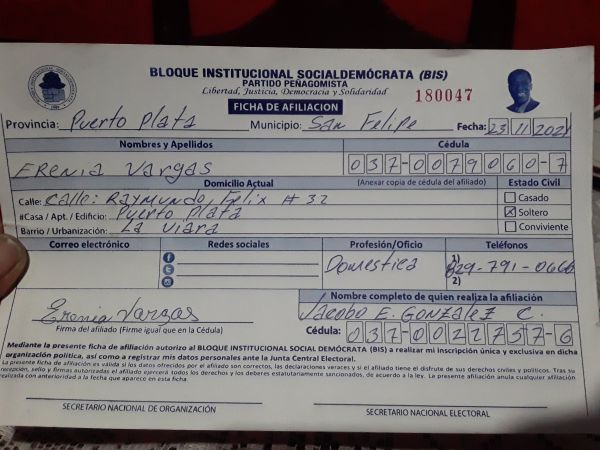 BLOQUE INSTITUCIONAL SOCIALDEMÓCRATA (BIS)
PARTIDO PEÑAGOMISTA
Libertad, Justicia, Democracia y Solidaridad
180047
FICHA DE AFILIACION
Provincia: Puerto Plata Municipio: San Felipe Fecha: 23 11 2021
Nombres y Apellidos Cédula
Erenia Vargas 037-0079060-7
Domicilio Actual (Anexar copia de cédula del afiliado) Estado Civil
Calle: Calle: Raymundo Felix # 32 Casado
#Casa / Apt. / Edificio: Puerto Plata X Soltero
Barrio / Urbanización: La Viara Conviviente
Correo electrónico Redes sociales Profesión/Oficio Teléfonos
Domestica 1) 829-791-0666
2)
Nombre completo de quien realiza la afiliación
Erenia Vargas Jacobo E. Gonzalez C.
Firma del afiliado (Firme igual que en la Cédula) Cédula: 037-0022757-6
Mediante la presente ficha de afiliación autorizo al BLOQUE INSTITUCIONAL SOCIAL DEMÓCRATA (BIS) a realizar mi inscripción única y exclusiva en dicha
organización política, así como a registrar mis datos personales ante la Junta Central Electoral.
La presente ficha de afiliación es valida si los datos ofrecidos por el afiliado son correctos, las declaraciones veraces y si el afiliado tiene el disfrute de sus derechos civiles y politicos. Tras su
recepción, sello y firmas autorizadas el afiliado ejercerá todos los derechos y los deberes estatutariamente sancionados, de acuerdo a la ley. La presente afiliación anula cualquier afiliación
realizada con anterioridad a la fecha que aparece en esta ficha.
SECRETARIO NACIONAL DE ORGANIZACIÓN SECRETARIO NACIONAL ELECTORAL